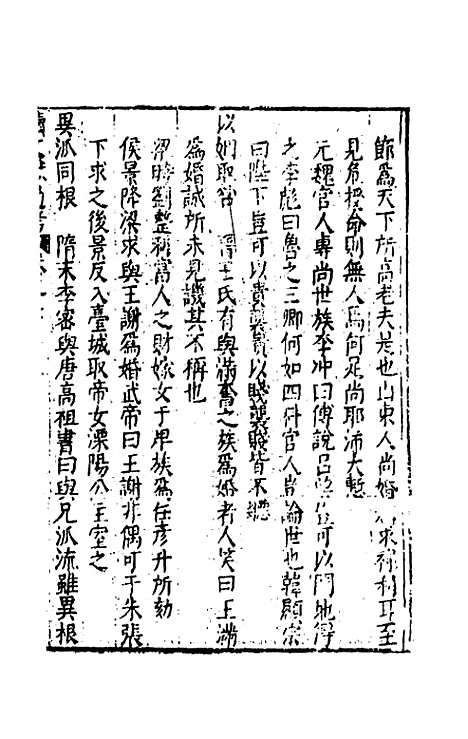 節為天下所高老夫是也山東人尚婚求祿利耳至
見危授命則無人焉何足尚耶沛大慙
元魏官人專尚世族李冲曰傅說呂望豈可以門地得
之李彪曰魯之三卿何如四科官人豈論世也韓顯宗
曰陛下豈可以貴襲貴以賤襲賤皆不聽
以姻取答　王氏有與滿奮之族為婚者人笑曰王滿
為婚誠所未見譏其不稱也
梁時劉整利富人之財嫁女于卑族為任彥升所劾
侯景降梁求與王謝為婚武帝曰王謝非偶可于朱張
下求之後景反入臺城取帝女溧陽公主室之
異派同根　隋末李密與唐高祖書曰與兄派流雖異根